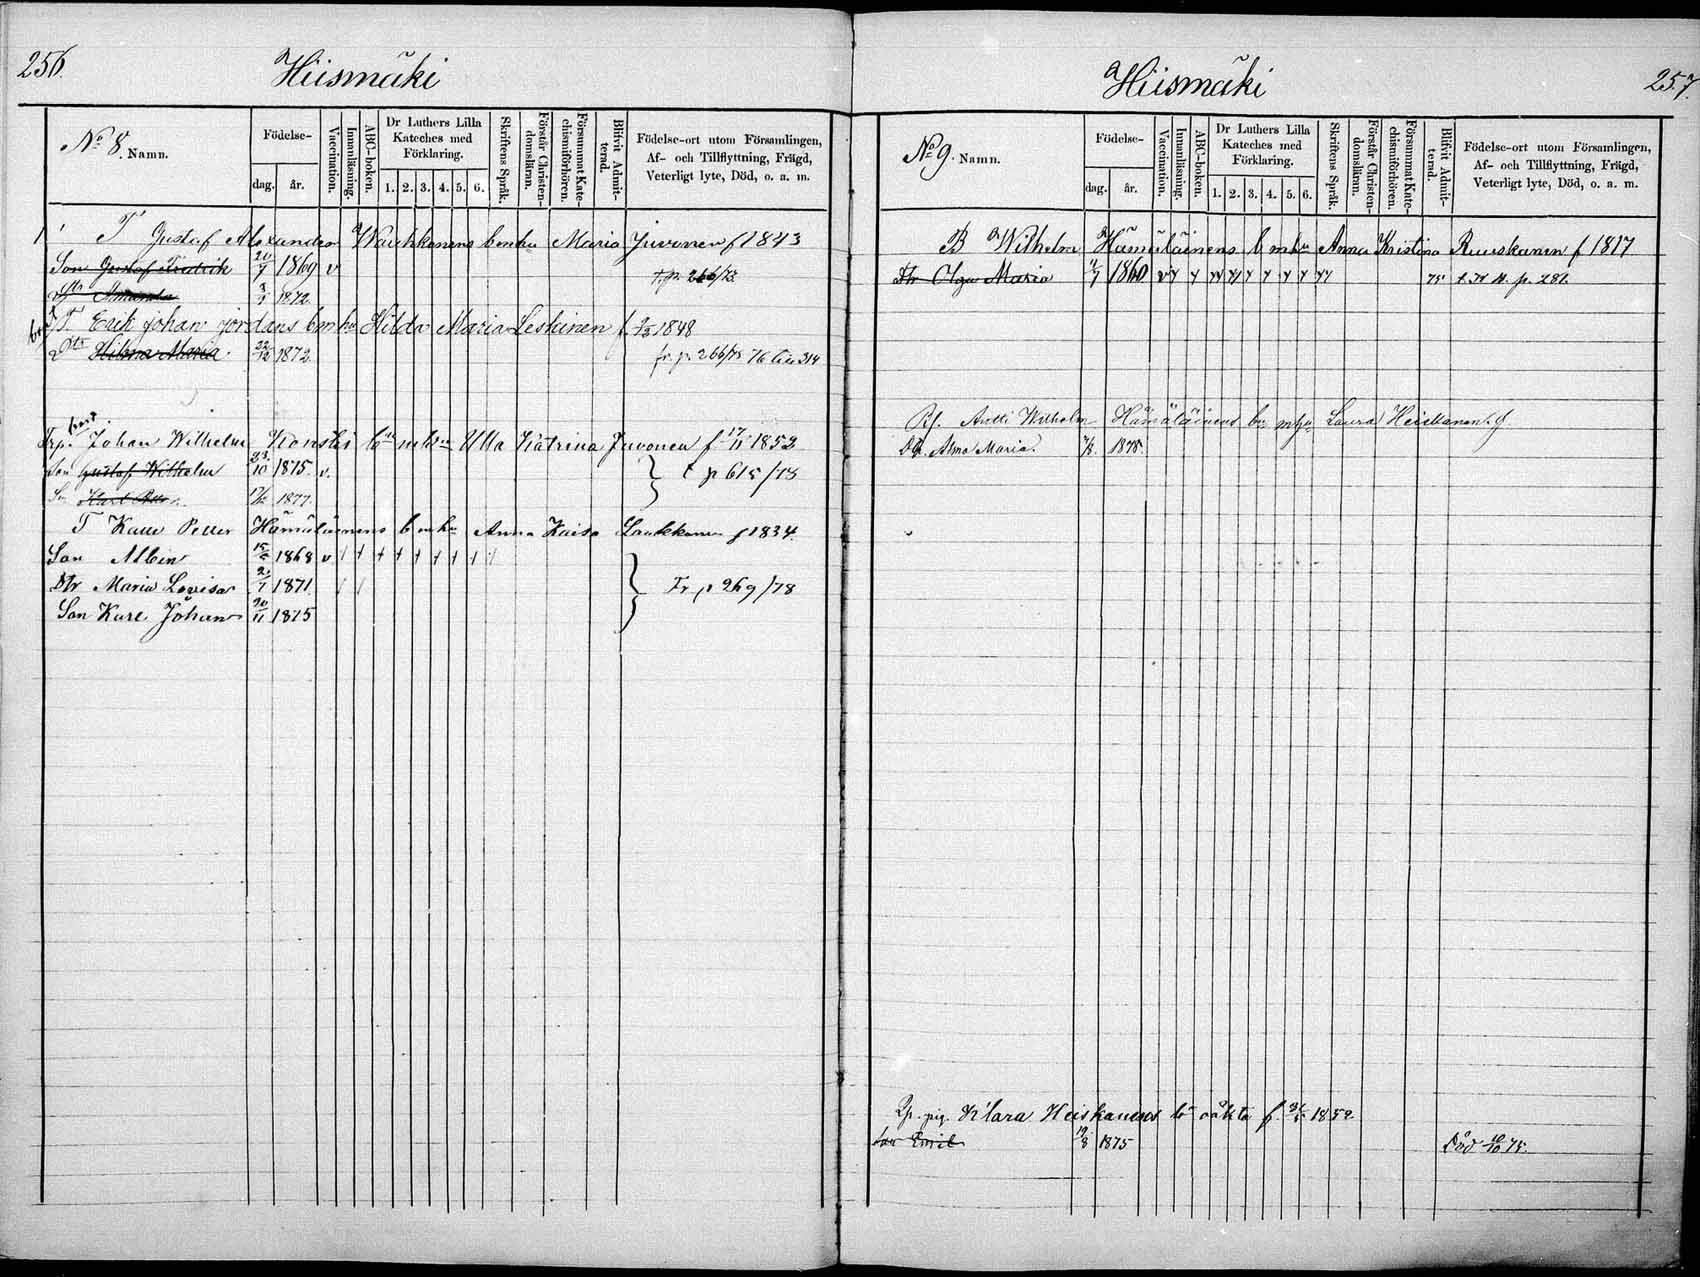 256.
Hiismäki
No 8. Namn.
Födelse-
dag. år.
Vaccination.
Innanläsning.
ABC-boken.
Dr Luthers Lilla Kateches med Förklaring.
1. 2. 3. 4. 5. 6.
Skriftens Språk.
Förstår Christendomsläran.
Försummat Katechismiförhören.
Blifvit Admitterad.
Födelse-ort utom Församlingen, Af- och Tillflyttning, Frägd, Veterligt lyte, Död, o. a. m.
T Gustaf Alexander Wauhkonens b m hu Maria Juvonen f 1843
Son Gustaf Fredrik 20/7 1869 v t. p. 266/73.
Amanda 3/9 1872
T Erik Johan Jordans b m hu Hilda Maria Leskinen f 1848
Dtr Hilma Maria 22/12 1872 fr. p. 266/73 76 314
Johan Wilhelm b m hu Ulla Katrina Juvonen f 17/11 1852
Son Gustaf Wilhelm 23/10 1875. v. t p 615/78
Sn 17/12 1877.
T Kalle Petter Hämäläinens b m hu Anna Kaisa Laukkanen f 1834.
Son Albin 1868 v
Dtr Maria Lovisa 2/7 1871 Fr p 269/78
Son Karl Johan 30/11 1875
257.
Hiismäki
No 9. Namn.
Födelse-
dag. år.
Vaccination.
Innanläsning.
ABC-boken.
Dr Luthers Lilla Kateches med Förklaring.
1. 2. 3. 4. 5. 6.
Skriftens Språk.
Förstår Christendomsläran.
Försummat Katechismiförhören.
Blifvit Admitterad.
Födelse-ort utom Församlingen, Af- och Tillflyttning, Frägd, Veterligt lyte, Död, o. a. m.
B Wilhelm Hämäläinens b m hu Anna Kristina Ruuskanen f 1817
Dtr Olga Maria 1860 v 75 p. 281.
Antti Wilhelm Hämäläinens b m hu Laura Heiskanen f.
Dr. Alma Maria. 1878.
pig. Klara Heiskanens b oäkta f. 1852.
Son Emil 19/8 1875 Död 75.